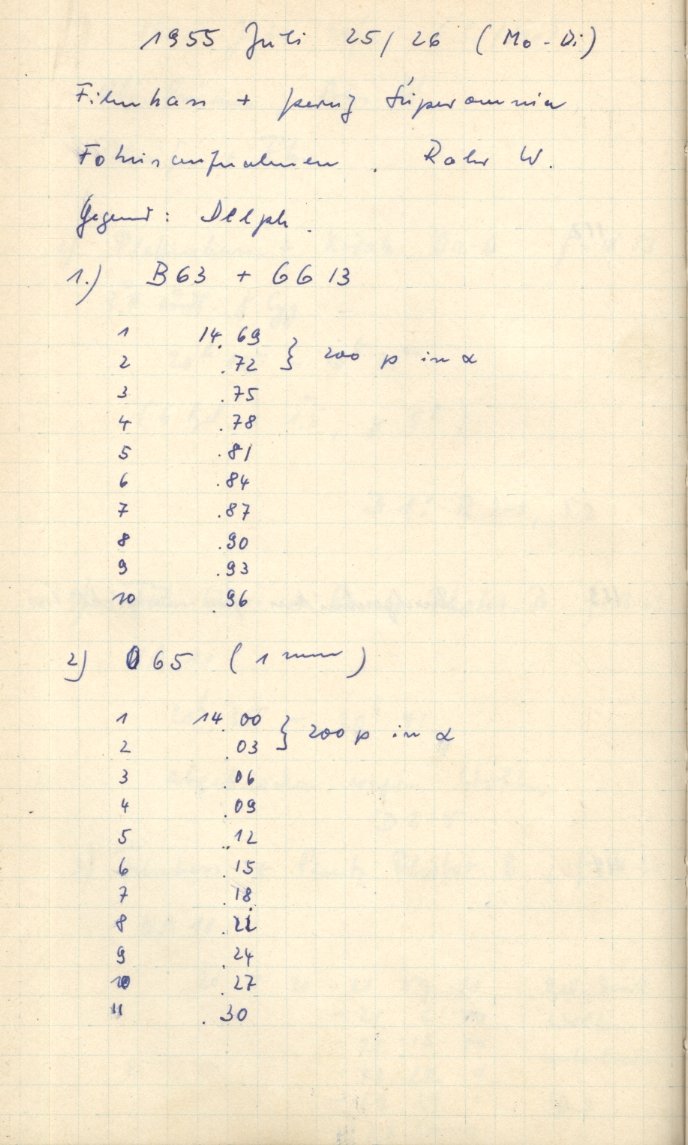 1955 Juli 25/26 (Mo-Di)
+ Perutz
Fokusaufnahmen. Rohr W.
Gegend: Delph.
1.) B63 + GG 13
1 14.69
2 .72 } 200 p in α
3 .75
4 .78
5 .81
6 .84
7 .87
8 .90
9 .93
10 .96
2) 65 (1 mm)
1 14.00
2 .03 } 200 p in α
3 .06
4 .09
5 .12
6 .15
7 .18
8 .21
9 .24
10 .27
11 .30